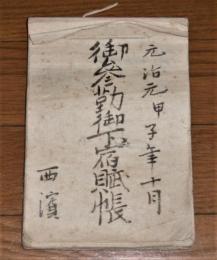 元治元甲子年十月
御参勤御下宿賦帳
西濱